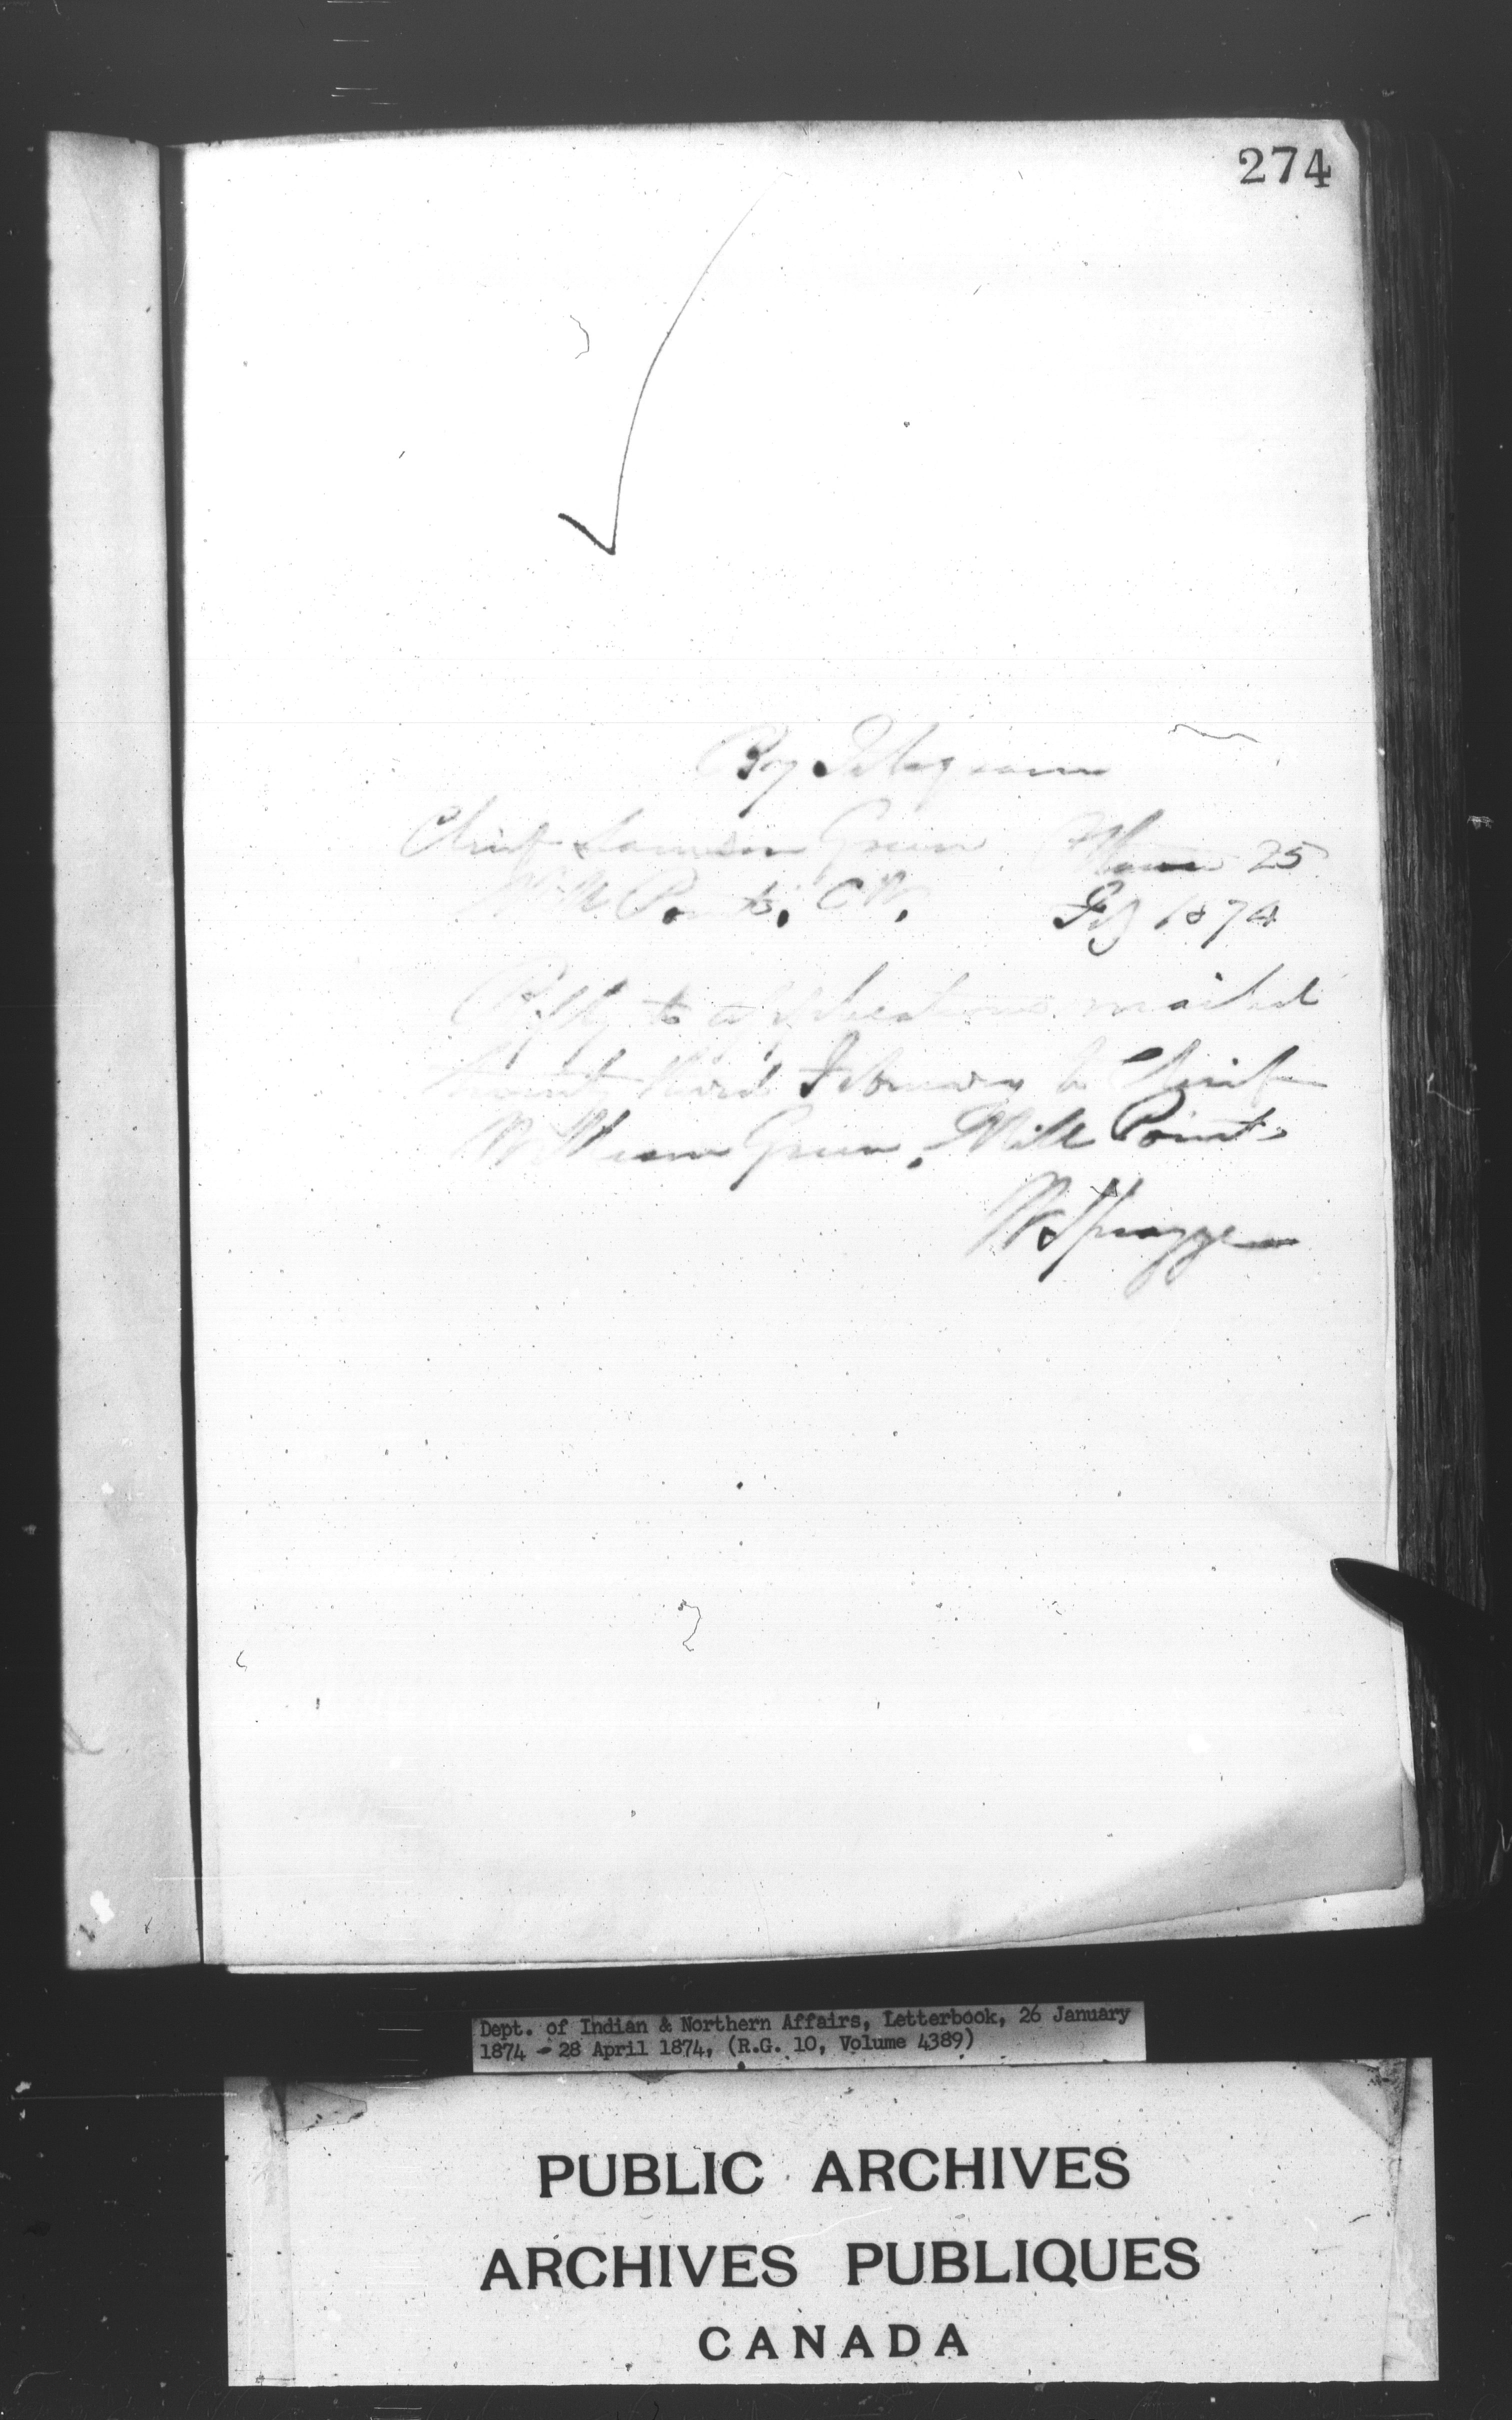 274
By Telegram
Chief Samson Green Ottawa 25
Mill Point, C.W. Feby 1874
Reply to application mailed
twenty third February to Chief
William Green, Mill Point
W Spragge
Dept. of Indian & Northern Affairs, Letterbook, 26 January
1874 - 28 April 1874, (R.G. 10, Volume 4389)
PUBLIC ARCHIVES
ARCHIVES PUBLIQUES
CANADA